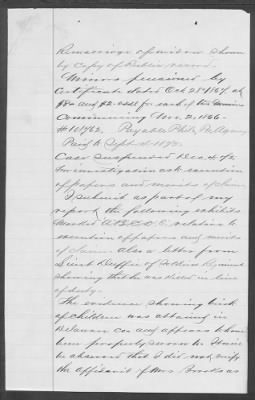 Remarriage of widow shown
by Copy of Public record.
Minors pensioned by
Certificate dated Oct 21st 1867, at
$8 and $2. addl for each of two minors
Commencing Nov. 2, 1866.
Payable Phila Pa Agency
Paid to Sept 4 1873.
Case suspended Dec
for investigation as to execution
of papers and merits of claim
I submit as part of my
report the following exhibits
Marked A B C D E, relative to
execution of papers and merits
of claim also a letter from
Lieut Duffie of Soldiers Regiment
showing that he was killed in line
of duty.
The evidence showing birth
of children was obtained in
Delaware Co and appears to have
been properly sworn to. It will
be observed that I did not verify
the affidavit of Mrs Brooks as